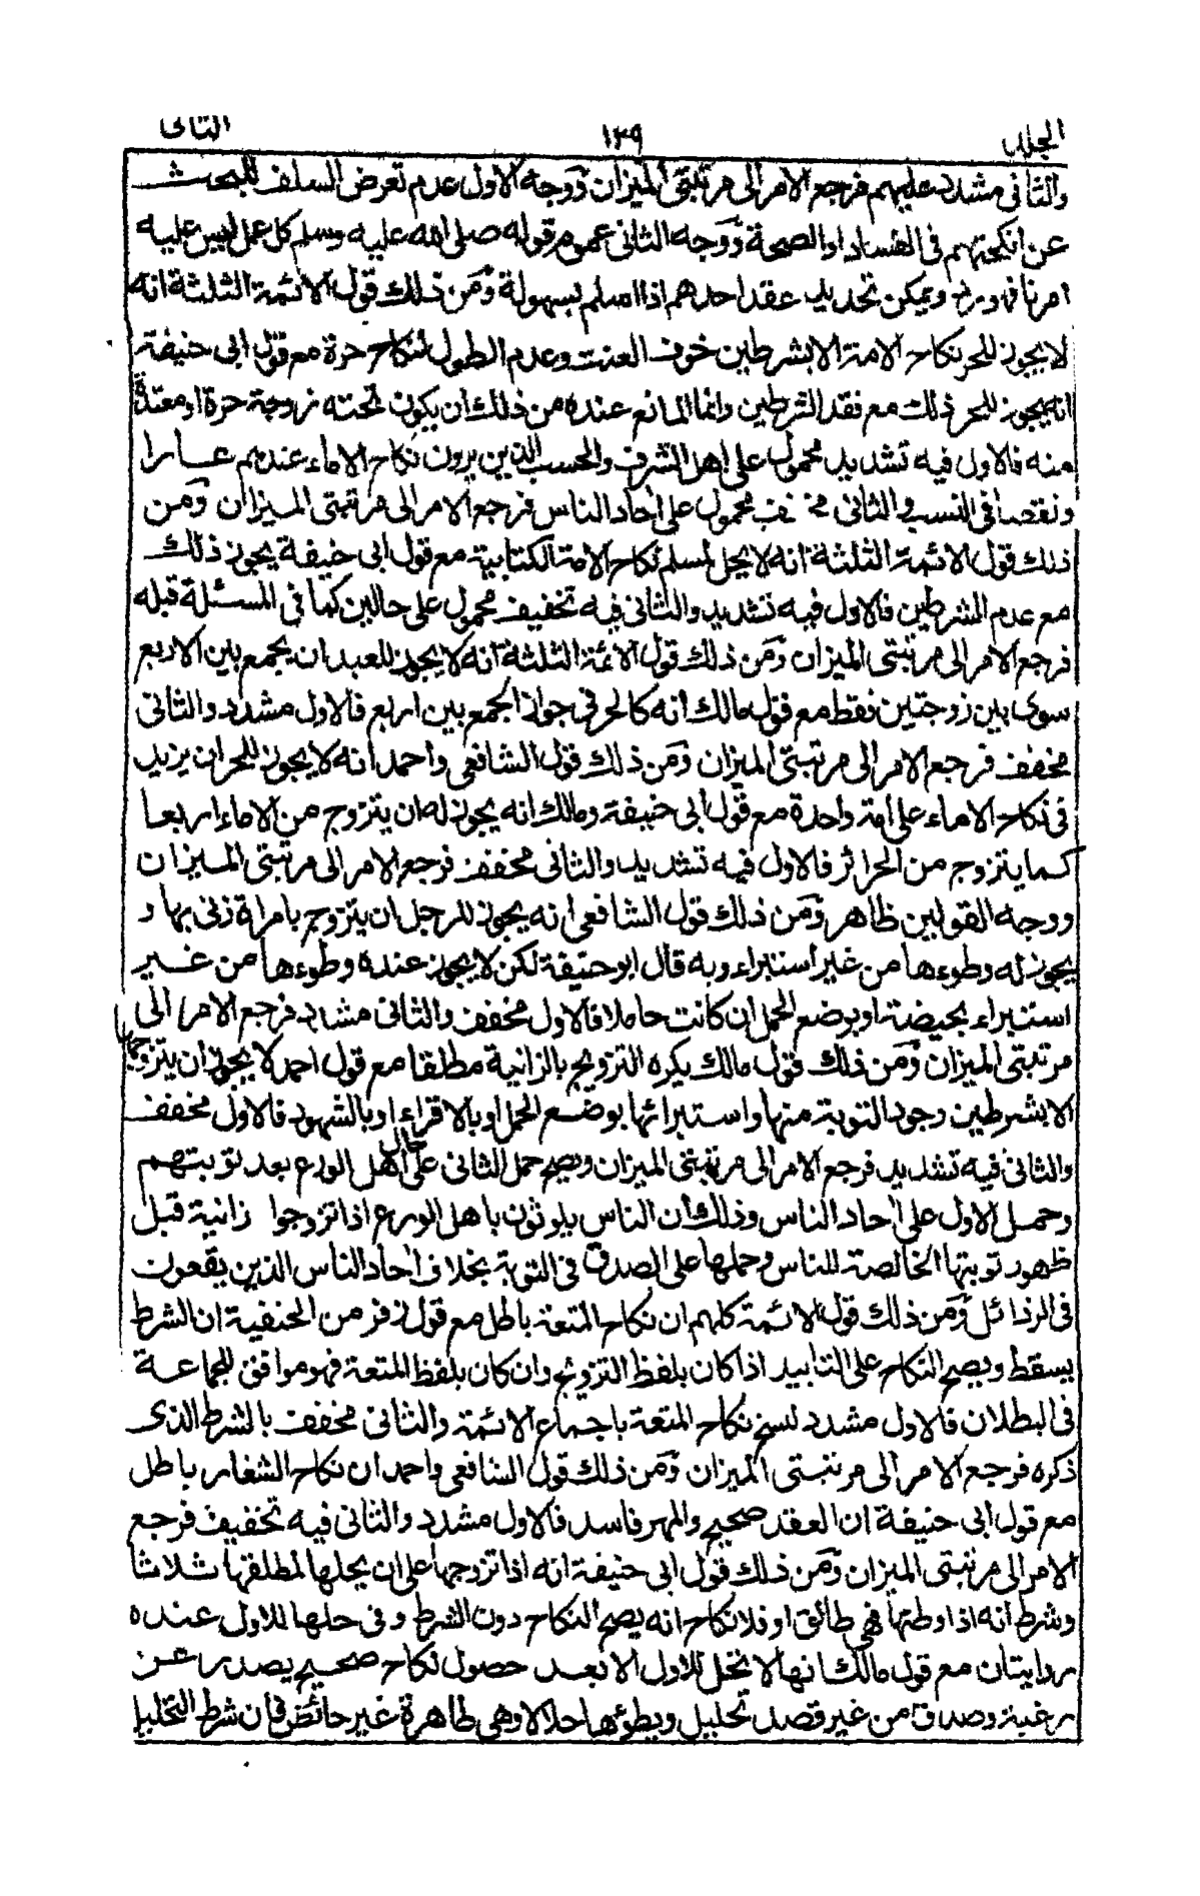 الجلد ١٣٩ الثانى
والثانى مشدد عليهم فرجع الامر الى مرتبتى الميزان ووجه الاول عدم تعرض السلف للبحث
عن انكحتهم فى الفساد او الصحة ووجه الثانى عموم قوله صلى الله عليه وسلم كل عمل ليس عليه
امرنا فهو رد ويمكن تجديد عقد احدهم اذا اسلم بسهولة ومن ذلك قول الائمة الثلثة انه
لا يجوز للحر نكاح الامة الا بشرطين خوف العنت وعدم الطول لنكاح حرة مع قول ابى حنيفة
انه يجوز للحر ذلك مع فقد الشرطين وانما المانع عنده من ذلك ان يكون تحته زوجة حرة او معتدة
منه فالاول فيه تشديد محمول على اهل الشرف والحسب الذين يرون نكاح الاماء عندهم عارا
ونقصا فى النسب والثانى مخفف محمول على احاد الناس فرجع الامر الى مرتبتى الميزان ومن
ذلك قول الائمة الثلثة انه لا يحل لمسلم نكاح الامة الكتابية مع قول ابى حنيفة يجوز ذلك
مع عدم الشرطين فالاول فيه تشديد والثانى فيه تخفيف محمول على حالين كما فى المسئلة قبله
فرجع الامر الى مرتبتى الميزان ومن ذلك قول الائمة الثلثة انه لا يجوز للعبد ان يجمع بين الاربع
سوى بين زوجتين فقط مع قول مالك انه كالحر فى جواز الجمع بين اربع فالاول مشدد والثانى
مخفف فرجع الامر الى مرتبتى الميزان ومن ذلك قول الشافعى واحمد انه لا يجوز للحر ان يزيد
فى نكاح الاماء على امة واحدة مع قول ابى حنيفة ومالك انه يجوز له ان يتزوج من الاماء اربعا
كما يتزوج من الحرائر فالاول فيه تشديد والثانى مخفف فرجع الامر الى مرتبتى الميزان
ووجه القولين ظاهر ومن ذلك قول الشافعى انه يجوز للرجل ان يتزوج بامراة زنى بها و
يجوز له وطوءها من غير استبراء وبه قال ابو حنيفة لكن لا يجوز عنده وطوءها من غير
استبراء بحيضة او بوضع الحمل ان كانت حاملا فالاول مخفف والثانى مشدد فرجع الامر الى
مرتبتى الميزان ومن ذلك قول مالك يكره التزويج بالزانية مطلقا مع قول احمد لا يجوز ان يتزوجها
الا بشرطين وجود التوبة منها واستبرائها بوضع الحمل او بالاقراء او بالشهود فالاول مخفف
والثانى فيه تشديد فرجع الامر الى مرتبتى الميزان ويصح حمل الثانى على حال اهل الورع بعد توبتهم
وحمل الاول على احاد الناس وذلك ان الناس يلوثون باهل الورع اذا تزوجوا زانية قبل
ظهور توبتها الخالصة للناس وحملها على الصدق فى التوبة بخلاف احاد الناس الذين يقعون
فى الرذائل ومن ذلك قول الائمة كلهم ان نكاح المتعة باطل مع قول زفر من الحنفية ان الشرط
يسقط ويصح النكاح على التابيد اذا كان بلفظ التزويج وان كان بلفظ المتعة فهو موافق للجماعة
فى البطلان فالاول مشدد لنسخ نكاح المتعة باجماع الائمة والثانى مخفف بالشرط الذى
ذكره فرجع الامر الى مرتبتى الميزان ومن ذلك قول الشافعى واحمد ان نكاح الشغار باطل
مع قول ابى حنيفة ان العقد صحيح والمهر فاسد فالاول مشدد والثانى فيه تخفيف فرجع
الامر الى مرتبتى الميزان ومن ذلك قول ابى حنيفة انه اذا تزوجها على ان يحلها لمطلقها ثلاثا
وشرط انه اذا وطئها فهى طالق او فلا نكاح انه يصح النكاح دون الشرط وفى حلها للاول عنده
روايتان مع قول مالك انها لا تحل للاول الا بعد حصول نكاح صحيح يصدر عن
رغبة وصداق من غير قصد تحليل ويطؤها حلالا وهى طاهرة غير حائض فان شرط التحليل